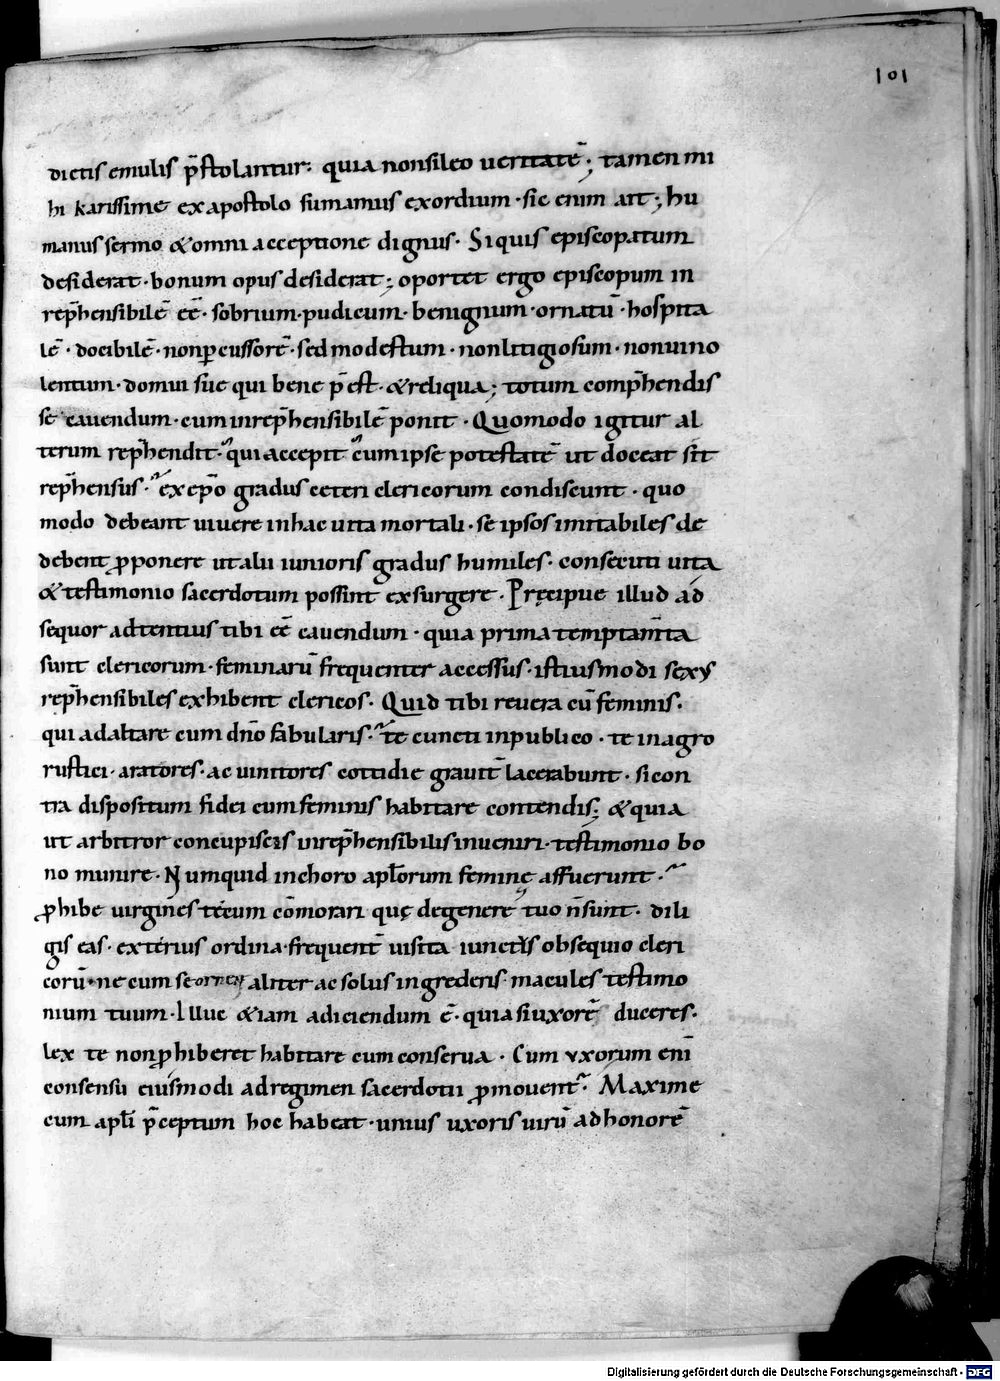 101
dictis emulis p̄stolantur. quia non sileo ueritatē; tamen mi
hi karissime ex apostolo sumamus exordium · sic enim ait; hu
manus sermo & omni acceptione dignus · Si quis episcopatum
desiderat · bonum opus desiderat; oportet ergo episcopum in
rep̄hensibilē eē · sobrium · pudicum · benignum · ornatū · hospita
lē · docibilē · non ꝑcussorē · sed modestum · non litigiosum · non uino
lentum · domui sue qui bene p̄est · & reliqua; totum comp̄hendis
se cauendum · cum inrep̄hensibilē ponit · Quomodo igitur al
terum rep̄hendit · qui accepit cum ipse potestatē ut doceat sit
rep̄hensus · ex ep̄o gradus ceteri clericorum condiscunt · quo
modo debeant uiuere in hac uita mortali · se ipsos imitabiles de
debent ꝓponere ut alii iunioris gradus humiles · consecuti uita
& testimonio sacerdotum possint exsurgere · Pręcipue illud ad
sequor adtentius tibi eē cauendum · quia prima temptam̄ta
sunt clericorum · feminarū frequenter accessus · istiusmodi sexus
rep̄hensibiles exhibent clericos · Quid tibi reuera cū feminis ·
qui ad altare cum dn̄o fabularis · te cuncti in publico · te in agro
rustici · aratores · ac uinitores cottidie grauit̄ lacerabunt · si con
tra dispositum fidei cum feminis habitare contendis; & quia
ut arbitror concupiscis inrep̄hensibilis inueniri · testimonio bo
no munire · Numquid in choro apl̄orum feminę affuerunt ·
ꝓhibe uirgines tecum cōmorari quę de genere tuo n̄ sunt · dili
gis eas · exterius ordina · frequent̄ uisita iunctis obsequio cleri
corū · ne cum se aliter ac solus ingrederis · macules testimo
nium tuum · Illuc &iam adiciendum ē · quia si uxorē duceres ·
lex te non ꝓhiberet habitare cum conserua · Cum uxorum enī
consensu eiusmodi ad regimen sacerdotii ꝓmouent᷑ · Maxime
cum apl̄i p̄ceptum hoc habeat · unius uxoris uirū ad honorē
Digitalisierung gefördert durch die Deutsche Forschungsgemeinschaft - DFG